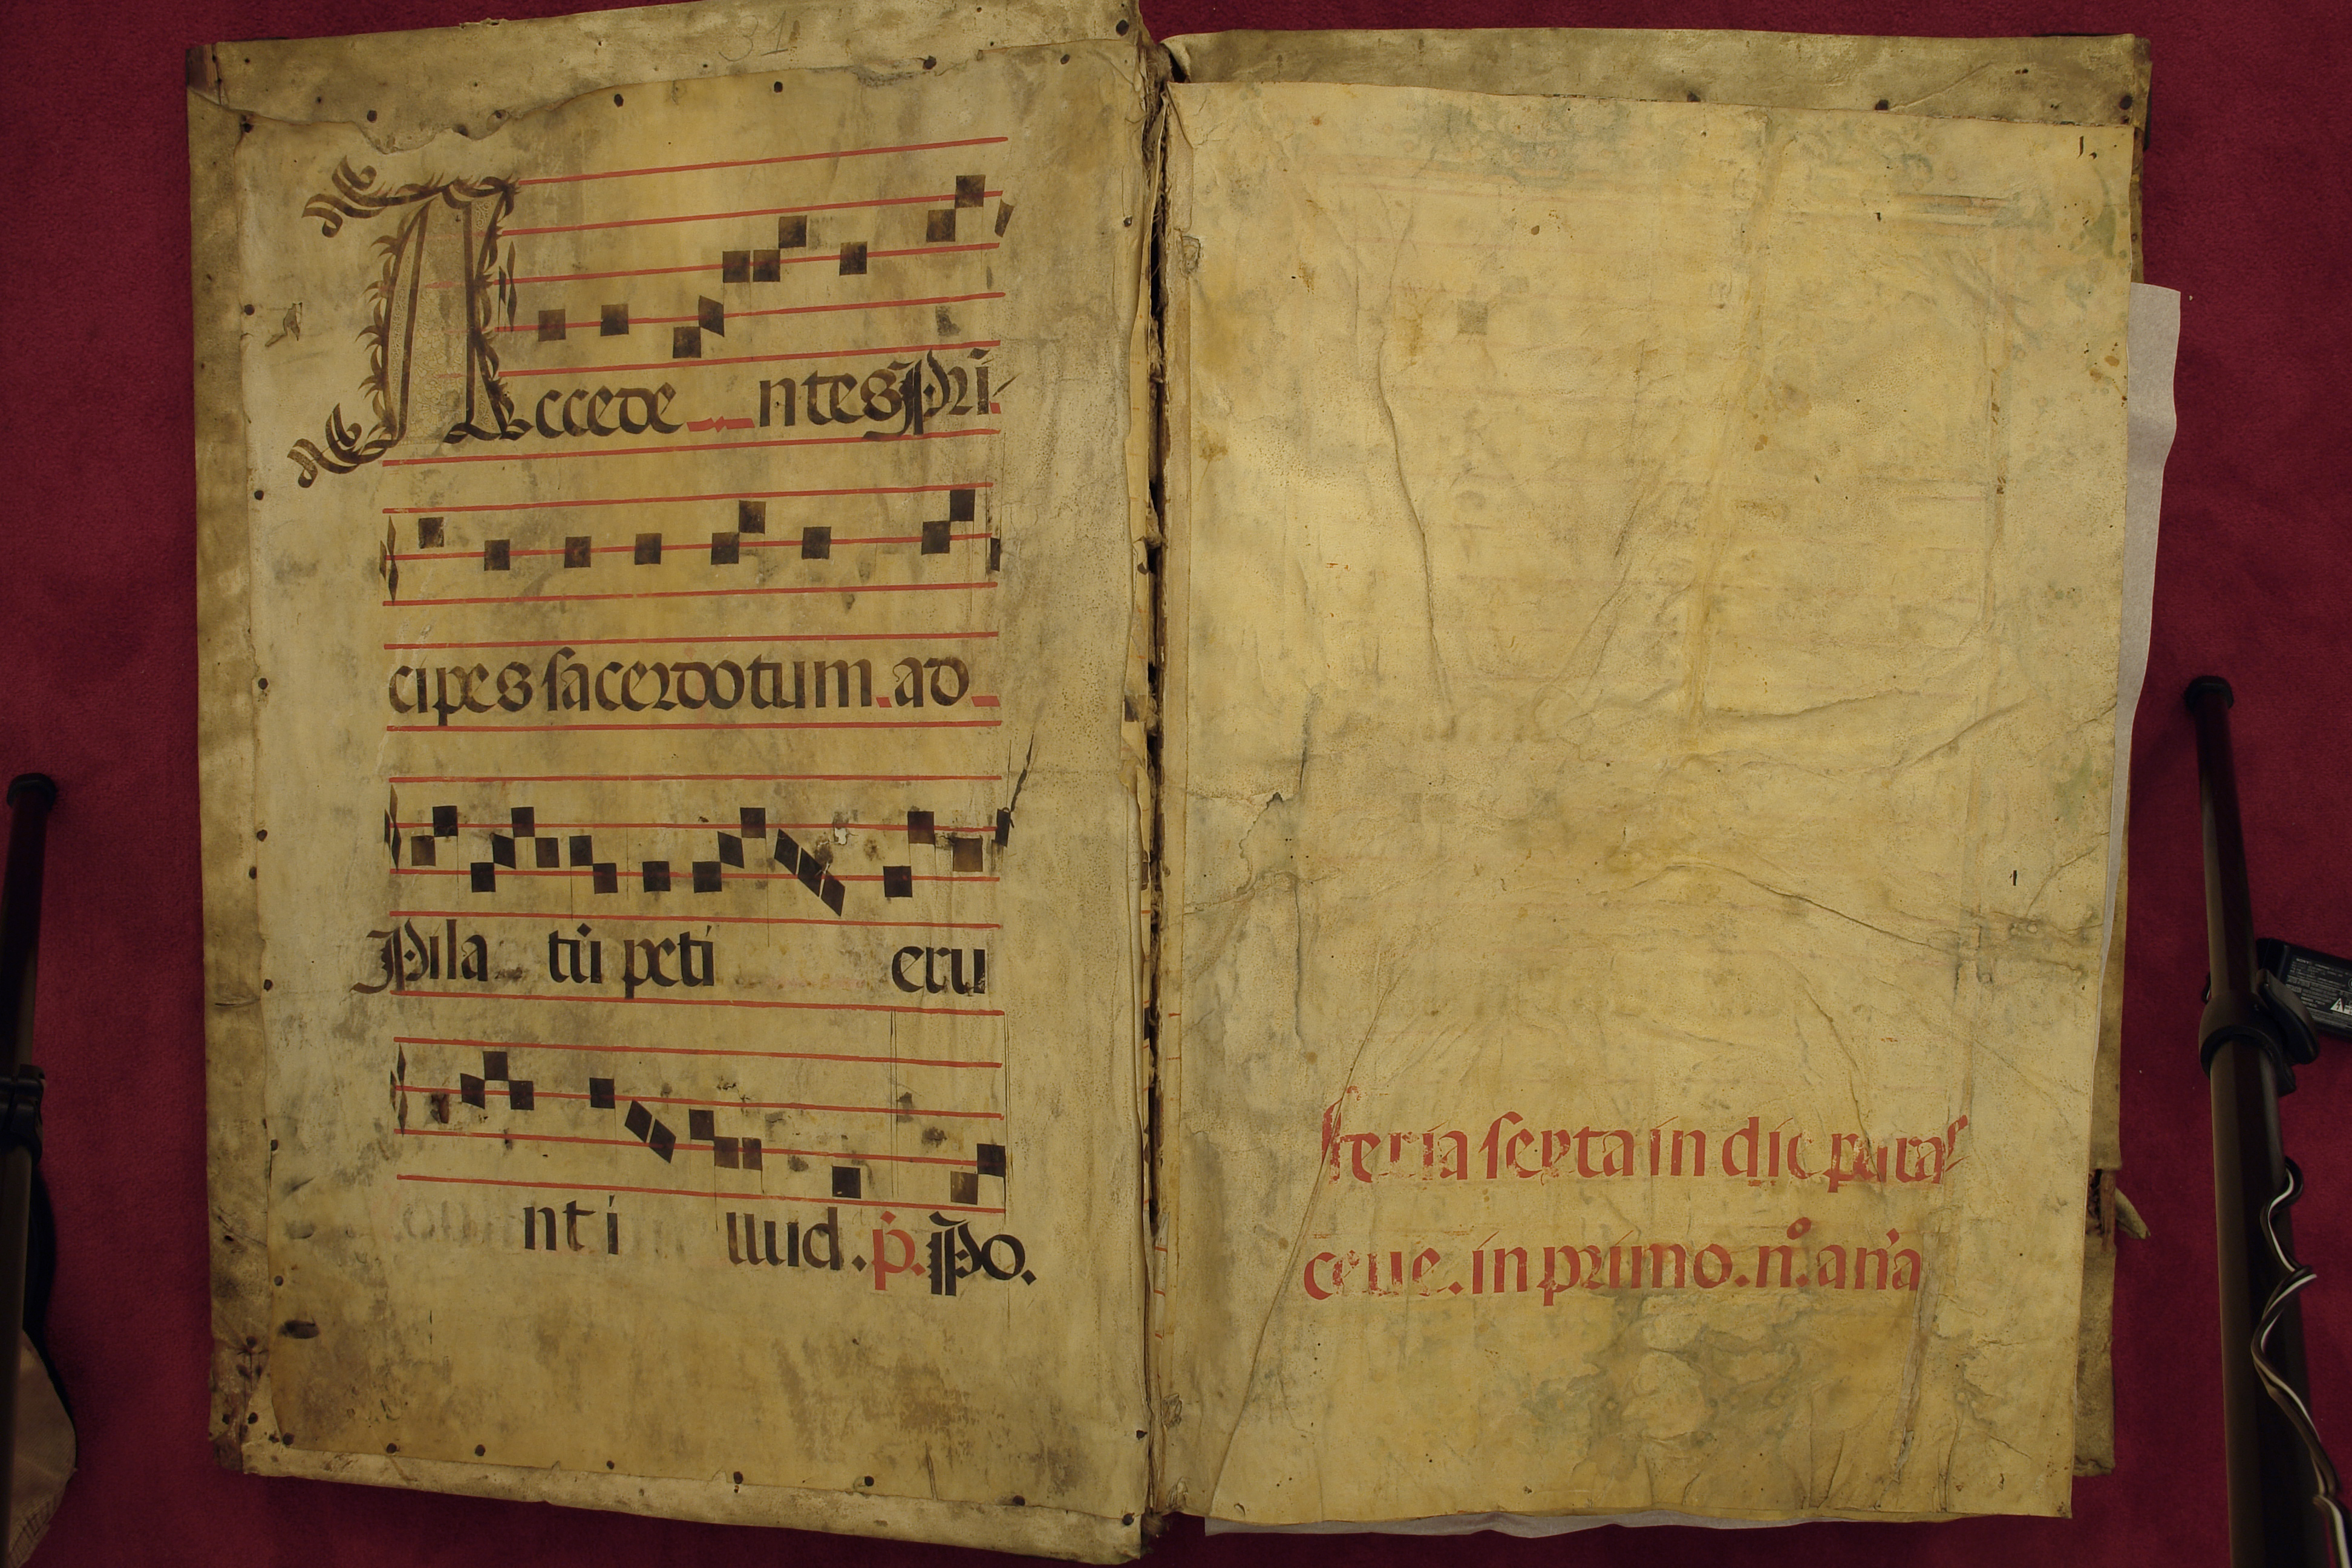 31
Accede ntes Pri
cipes sacerdotum. ad
Pila tū peti eru
nt i llud. p. Po.
1.
feria sexta in die para
ceue. in primo. nº. aña